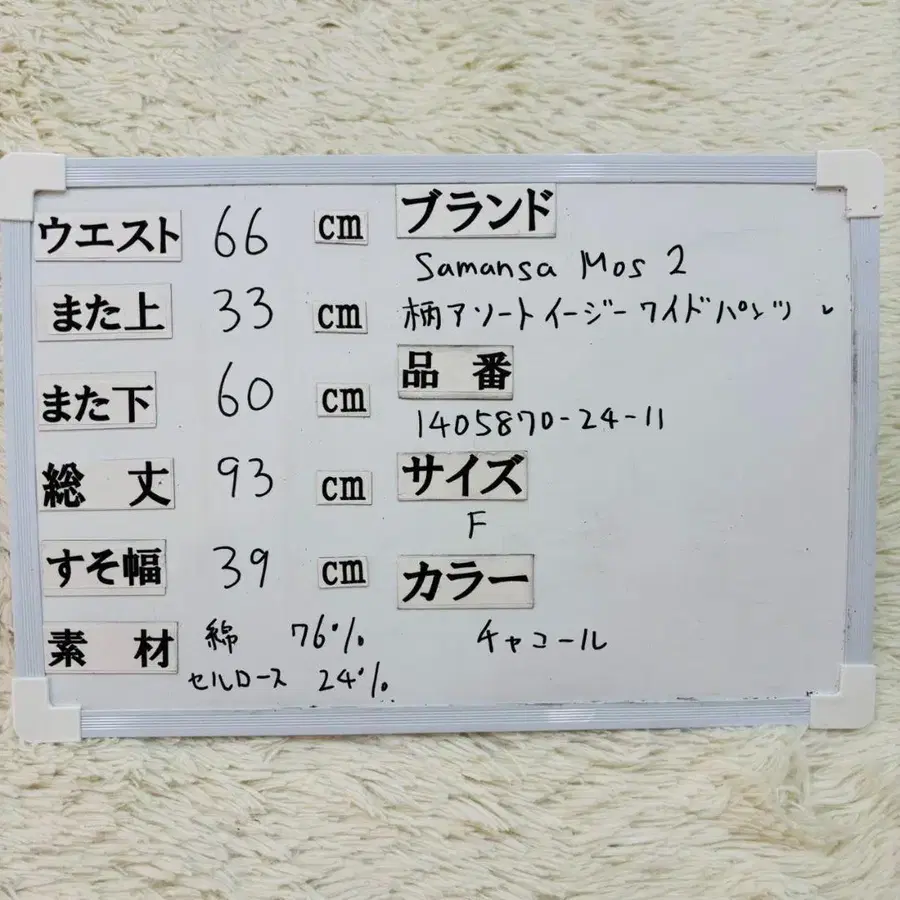 ウエスト 66 cm
また上 33 cm
また下 60 cm
総丈 93 cm
すそ幅 39 cm
素材 綿 76%
セルロース 24%
ブランド
Samansa Mos 2
柄アソートイージーワイドパンツ
品番
1405870-24-11
サイズ
F
カラー
チャコール